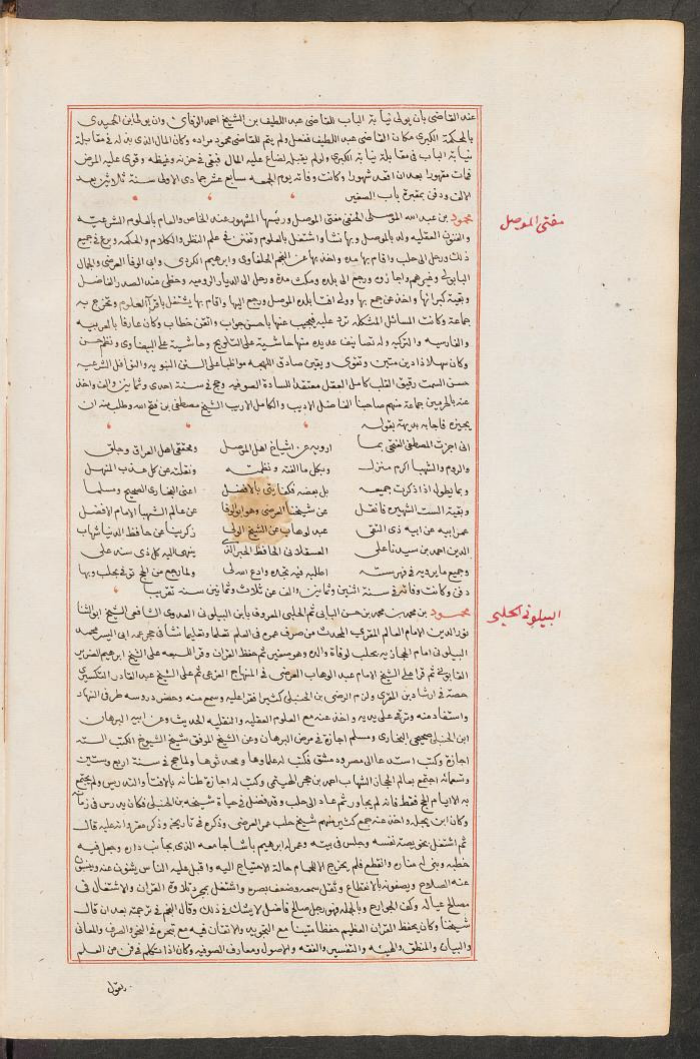 عند القاضى بان يولى نيابة الباب للقاضى عبد اللطيف بن الشيخ احمد الوفائى وان يولى ابن الحميدى
بالمحكمة الكبرى مكان القاضى عبد اللطيف ففعل ولم يتم للقاضى محمود مراده وكان المال الذى بذله فى مقابلة
نيابة الباب فى مقابلة نيابة الكبرى ولو لم يقبله لضاع عليه المال فبقى فى حزنه وغيظه وقوى عليه المرض
فمات مقهورا بعد ان اقعد شهورا وكانت وفاته يوم الجمعه سابع عشر جمادى الاولى سنة ثلاثين بعد
الالف ودفن بمقبرة باب الصغير
محمود بن عبد الله الموصلى الحنفى مفتى الموصل ورئيسها المشهور عند الخاص والعام بالعلوم الشرعيه
مفتى الموصل
والفنون العقليه ولد بالموصل وبها نشأ واشتغل بالعلوم وتفنن فى علم النظر والكلام والحكمه وبرع فى جميع
ذلك ورحل الى حلب واقام بها مدة واخذ بها عن النجم الحلفاوى وابراهيم الكردى وابى الوفا العرضى والجمال
البابولى وغيرهم واجازوه ورجع الى بلده ومكث مدة ورحل الى الديار الروميه وحظى عند الصدر الفاضل
وبقية كبرائها واخذ عن جمع بها وولى افتا بلده الموصل ورجع اليها واقام بها يشتغل باقرآء العلوم وتخرج به
جماعة وكانت المسائل المشكله ترد عليه فيجيب عنها باحسن جواب واتقن خطاب وكان عارفا بالعربيه
والفارسيه والتركيه وله تصانيف عديده منها حاشية على التلويح وحاشية على البيضاوى ونظم حسن
وكان سهلا ذا دين متين وتقوى ويقين صادق اللهجه مواظبا على السنن النبويه والنوافل الشرعيه
حسن السمت رقيق القلب كامل العقل معتقدا للسادة الصوفيه وحج فى سنة احدى وثمانين والف واخذ
عنه بالحرمين جماعة منهم صاحبنا الفاضل الاديب والكامل الاريب الشيخ مصطفى بن فتح الله وطلب منه ان
يجيزه فاجابه بديهة بقوله
انى اجزت المصطفى الفتحى بما ارويه عن اشياخ اهل الموصل ومحققى اهل العراق وجلق
والروم والشهبا اكرم منزل وبكل ما الفته ونظمته ونقلته عن كل عذب المنهل
وبما يطول اذا ذكرت جميعه بل بعضه فكفايتى بالافضل اعنى البخارى الصحيح ومسلما
وبقية الست الشهيرة فانقل عن شيخنا العرضى وهو ابو الوفا عن عالم الشهبا الامام الافضل
عمر ابيه عن ابيه ذى التقى عبد لوهاب عن الشيخ الولى زكرينا عن حافظ الدنيا شهاب
الدين احمد بن سيدنا على العسقلانى الحافظ الحبر الذى ينهى اليه كل ذى سند على
وجميع ما يرويه فى فهرسته اطلبه فيه تجده وادع الله لى ولما رجع من الحج توفى بحلب وبها
دفن وكانت وفاته فى سنة اثنين وثمانين والف عن ثلاث وثمانين سنة تقريبا
محمود بن محمد بن محمد بن حسن البابى ثم الحلبى المعروف بابن البيلونى العدوى الشافعى الشيخ ابو الثنا
البيلونى الحلبى
نور الدين الامام العالم المقرى المحدث من صرف عمره فى العلم تعلما وتعليما نشأ فى حجر عمه ابى اليسر محمد
البيلونى امام الحجازيه بحلب لوفاة والده وهو صغير ثم حفظ القران وقرا للسبعه على الشيخ ابراهيم الضرير
القابونى ثم قرا على الشيخ الامام عبد الوهاب العرضى فى المنهاج الفرعى ثم على الشيخ عبد القادر التكسيرى
حصة فى ارشاد بن المقرى ولزم الرضى بن الحنبلى كثيرا فقرا عليه وسمع منه وحضر دروسه طرفى النهار
واستفاد منه وتربى على يديه واخذ عنه مع العلوم العقليه والنقليه الحديث وعن ابيه البرهان
ابن الحنبلى صحيحى البخارى ومسلم اجازة فى مرض البرهان وعن الشيخ الموفق شيخ الشيوخ الكتب الستة
اجازة وكتب استدعا الى مصر ودمشق فكتب له علماوها ومحدثوها ولما حج فى سنة اربع وستين
وتسعمائه اجتمع بعالم الحجاز الشهاب احمد بن حجر الهيتمى وكتب له اجازة طنانه بالافتا والتدريس ولم يجتمع
به الا ايام الحج فقط فانه لم يجاور ثم عاد الى حلب وقد فضل فى حياة شيخه بن الحنبلى فكان يدرس فى زمانه
وكان ابن يجله واخذ عنه جمع كثير منهم شيخ حلب عمر العرضى وذكره فى تاريخه وذكر مقرواته عليه قال
ثم اشتغل بخويصة نفسه وجلس فى بيته وعمر له ابراهيم باشا جامعه الذى بجانب داره وجعل فيه
خطبه وبنى له مناره وانقطع فلم يخرج الا للحمام حالة الاحتياج اليه واقبل عليه الناس يثنون عنه وينسبون
عنه الصلاح ويصفونه بالانقطاع وثقل سمعه وضعف بصره واشتغل بمجرد تلاوة القران والاشتغال فى
مصالح عياله وكف الجوارح وبالجمله فهو رجل صالح فاضل لا يشك فى ذلك وقال النجم فى ترجمته بعد ان قال
شيخنا وكان يحفظ القران العظيم حفظا متينا مع التجويد والاتقان فيه مع تبحره فى النحو والصرف والمعانى
والبيان والمنطق والهيئه والتفسير والفقه والاصول ومعارف الصوفيه وكان اذا تكلم فى فن من العلم
يقول